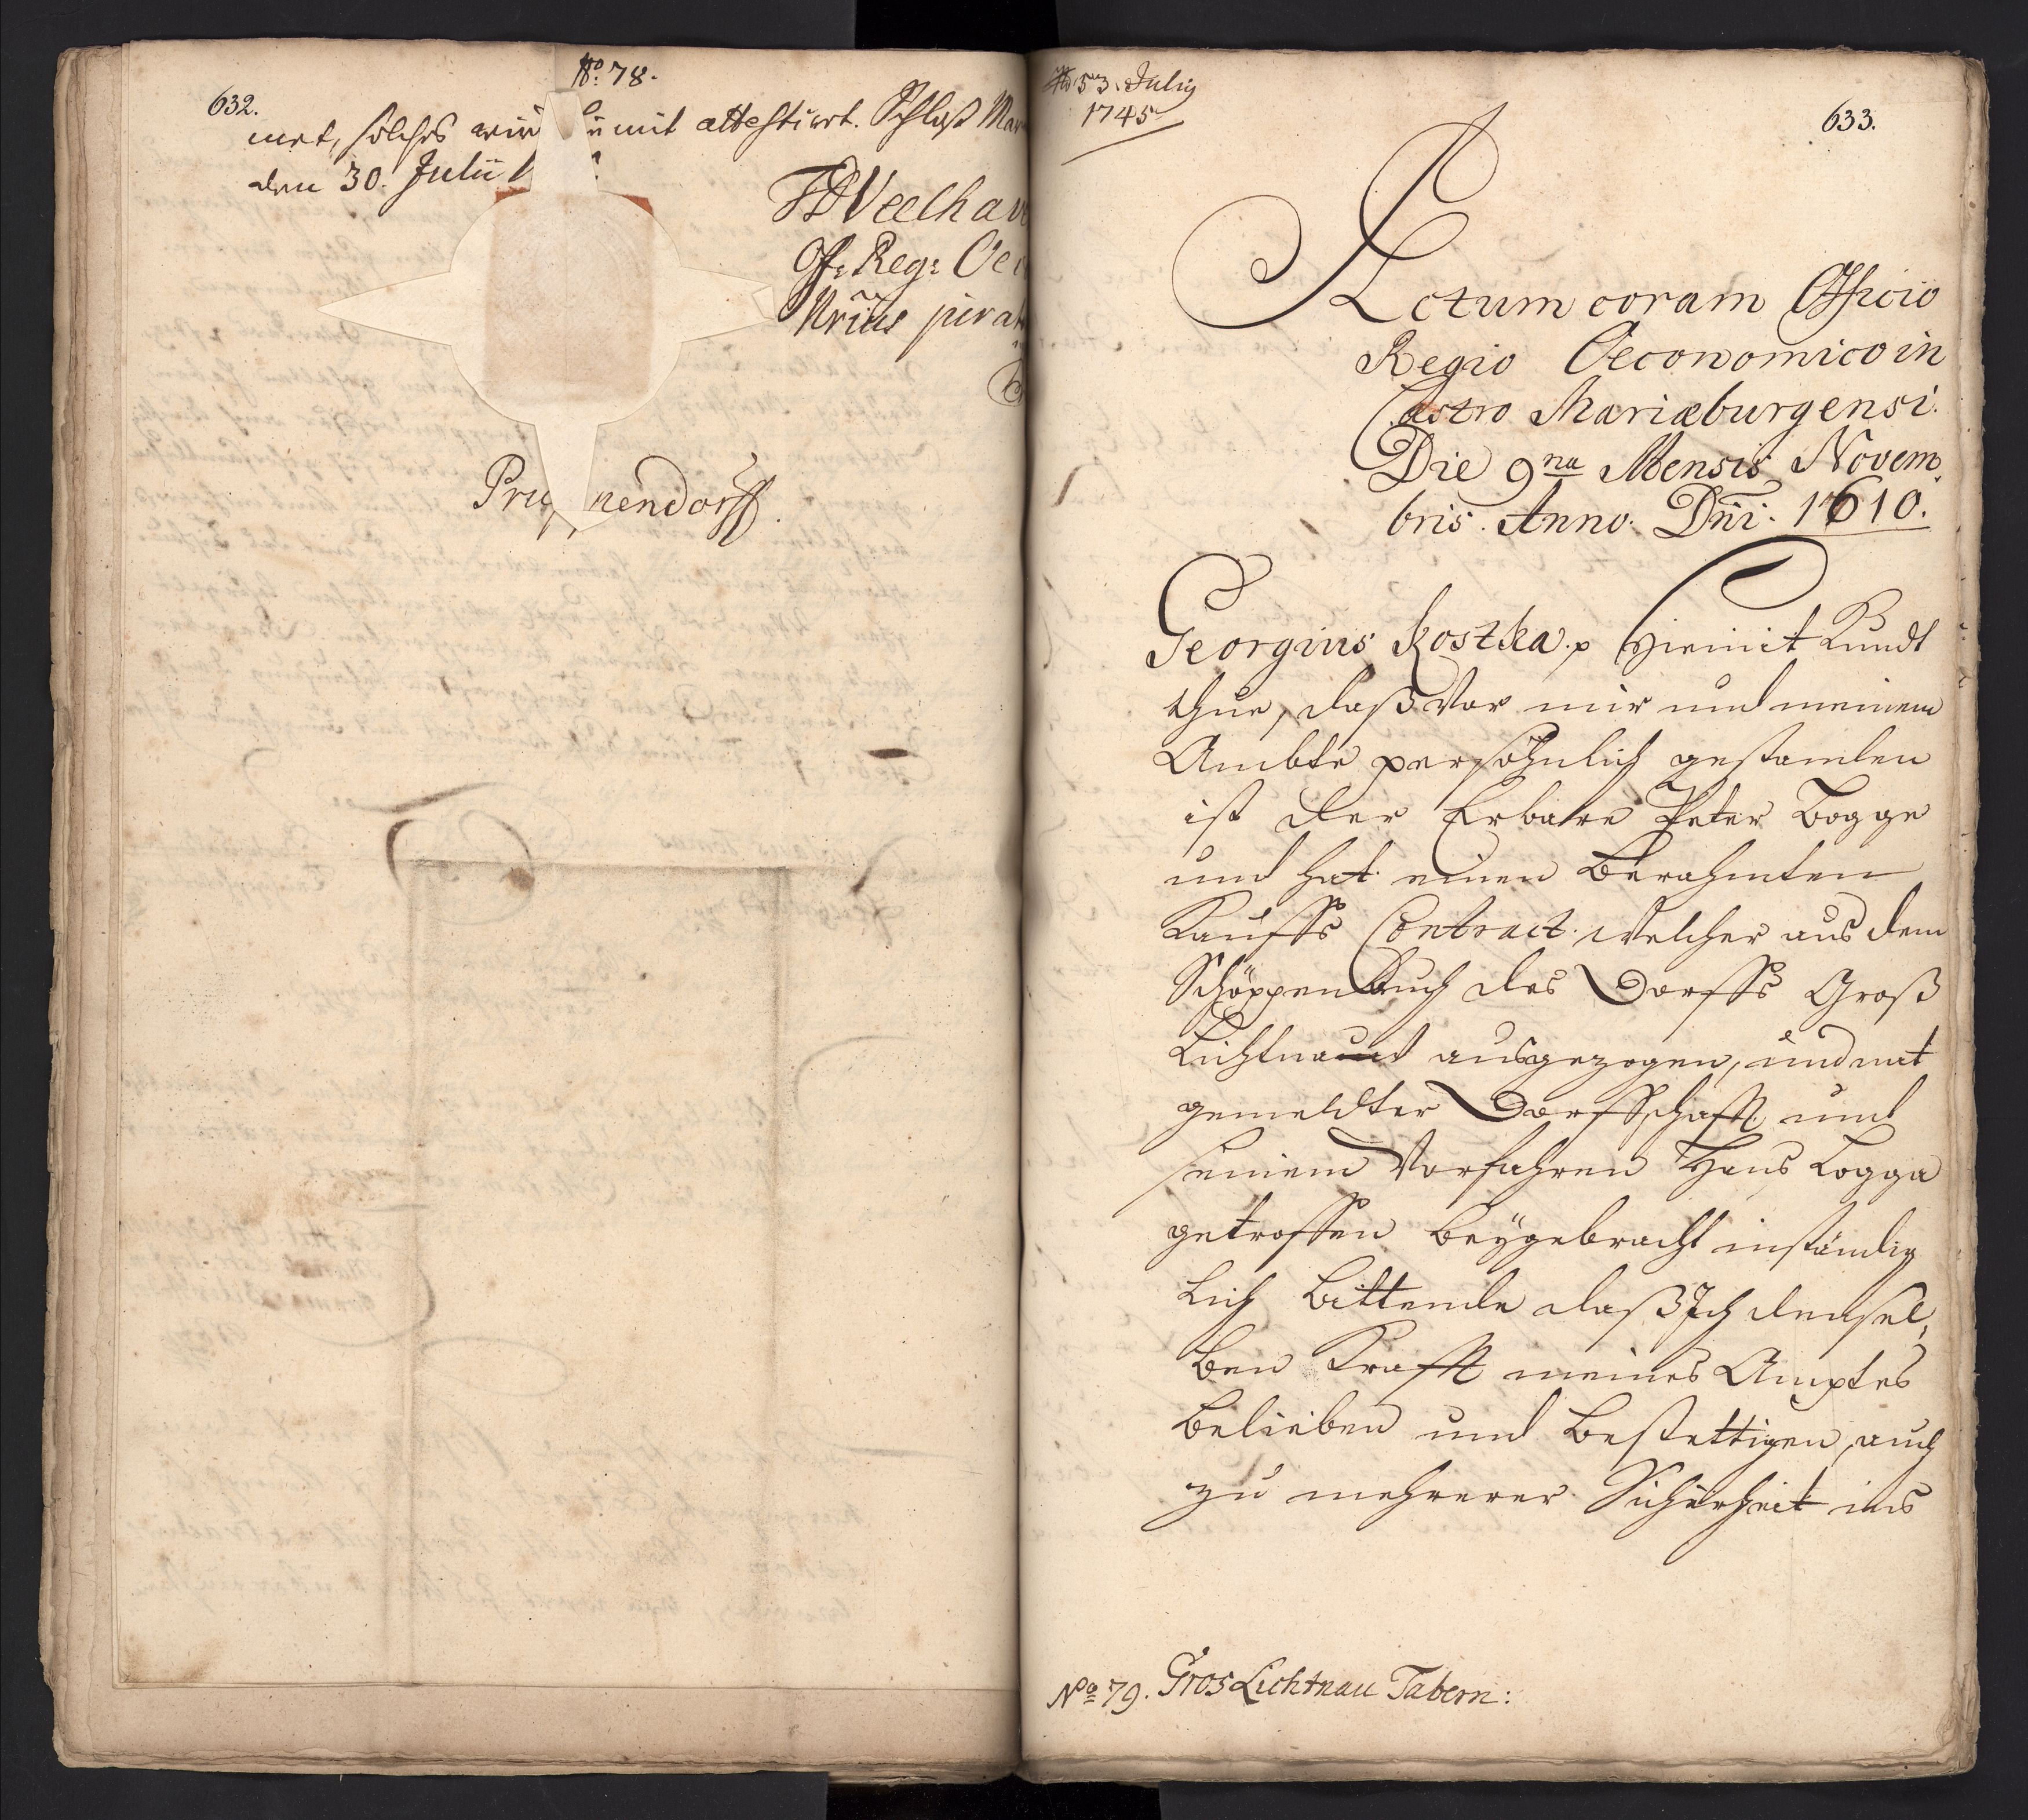 No: 78.
632.
met, solches wird hiemit attestirt. Schloß Mar
den 30. Julii
Off: Reg: Oec
Nrius jurat
Pru nendorff.
53. Julij
1745
633.
Actum coram Officio
Regio Oeconomico in
Castro Mariæburgensi.
Die 9na Mensis Novem
bris. Anno. Dni. 1610.
Georgius Kostka. p Hiemit Kundt
thue, daß Vor mir und meinem
Ambte persöhnlich gestanden
ist der Erbare Peter Logge
und hat einen Berahmten
Kauffs Contract. Welcher aus dem
Schöppenbuch des Dorffs Groß
Lichtnau ausgezogen, und mit
gemeldter Dorffschafft und
seinem Vorfahren Hans Logga
getroffen beÿgebracht inständig
lich bittende daß Ich densel,
ben Krafft meines Amptes
belieben und bestettigen, auch
zu mehrerer Sicherheit ins
No 79. Gros Lichtnau Tabern: